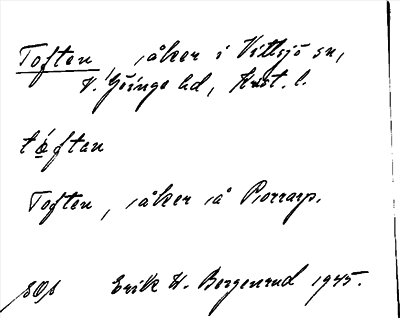 Toften, åker i Vittsjö sn,
V. Göinge hd, Krist. l.
tóftan
Toften, åker å Porrarp.
Erik W. Bergenrud 1945.